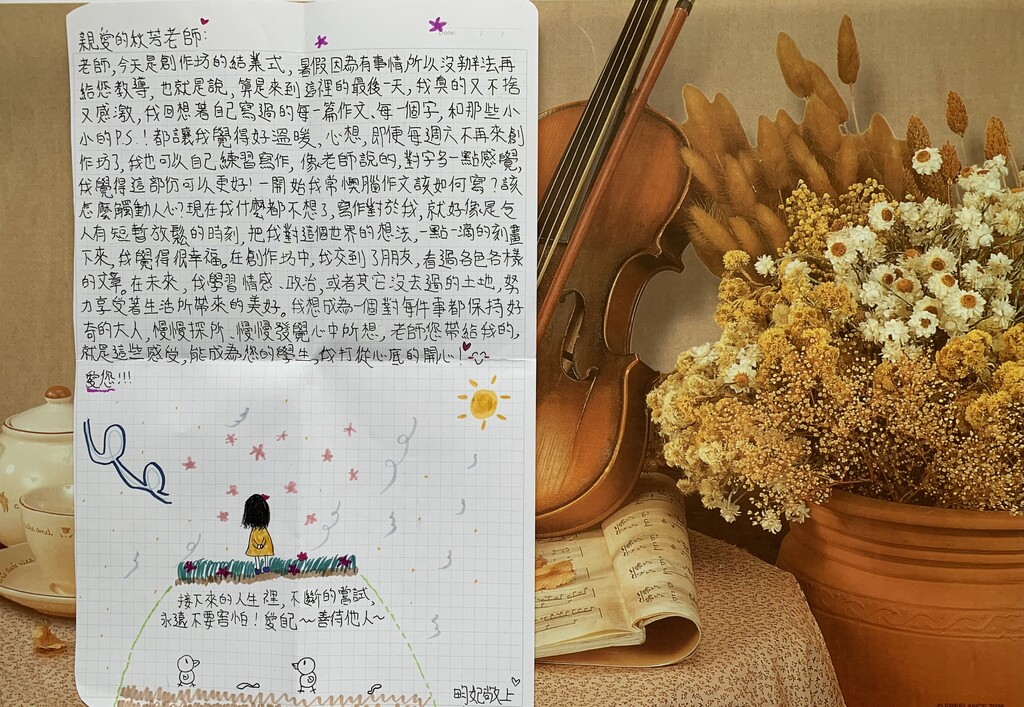 親愛的秋芳老師:
老師,今天是創作坊的結業式,暑假因為有事情所以沒辦法再
給您教導,也就是說,算是來到這裡的最後一天,我真的又不捨
又感激,我回想著自己寫過的每一篇作文、每一個字,和那些小
小的P.S.!都讓我覺得好溫暖,心想,即使每週六不再來創
作坊了,我也可以自己練習寫作,像老師說的,對字多一點感覺,
我覺得這部份可以更好!一開始我常懊腦作文該如何寫?該
怎麼觸動人心?現在我什麼都不想了,寫作對於我,就好像是令
人有短暫放鬆的時刻,把我對這個世界的想法,一點一滴的刻畫
下來,我覺得很幸福。在創作坊中,我交到了朋友,看過各色各樣
的文章。在未來,我學習情感、政治,或者其它沒去過的土地,努
力享受著生活所帶來的美好。我想成為一個對每件事都保持好
奇的大人,慢慢探所、慢慢發覺心中所想,老師您帶給我的,
就是這些感受,能成為您的學生,我打從心底的開心!
愛您!!!
接下來的人生裡,不斷的嘗試,
永遠不要害怕!愛自己~善待他人~
昀妃敬上